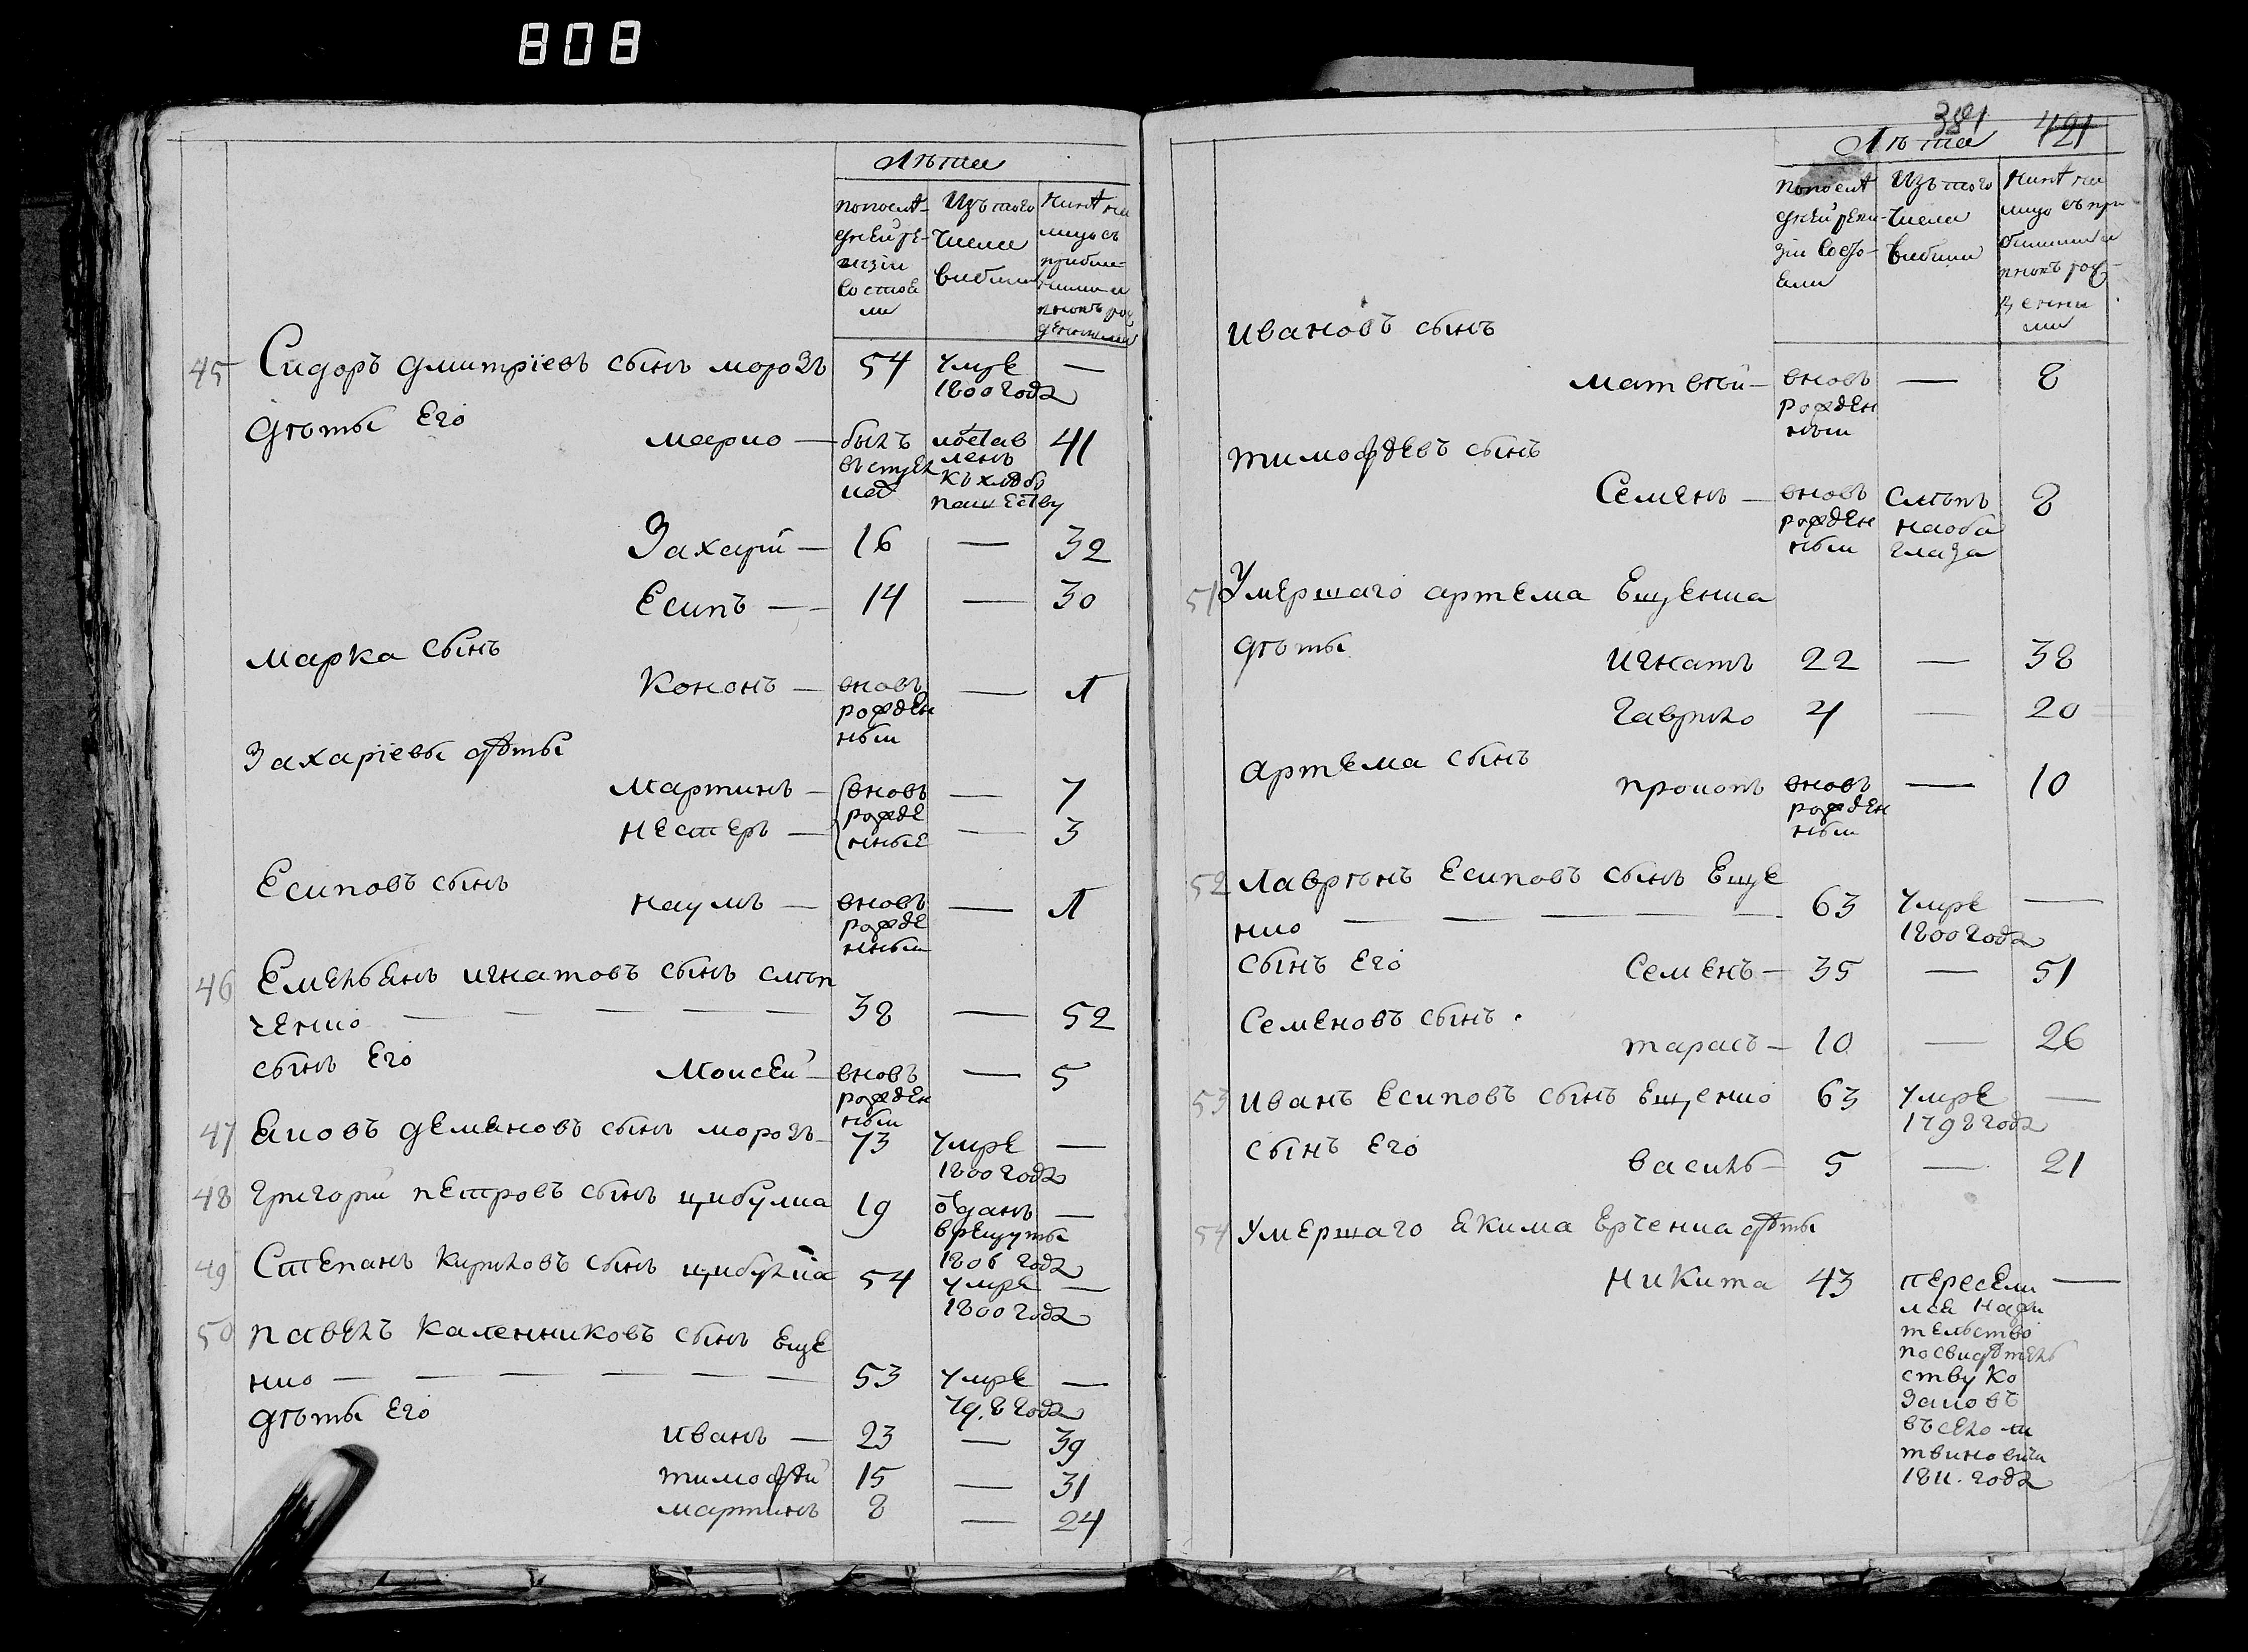 808
Лѣта
попослѣ-
дней ре-
визіи
состоя
ли
Изъ того
числа
выбыли
Нинѣ на
лицо съ
прибы-
лыми и
вновь рож
денными
45 Сидоръ дмитріевъ сынъ морозъ 54 Умре —
1800 года
Дѣты Его
марко — былъ постав 41
въ стрѣл ленъ
къ хлѣбо
пашеству
Захарій — 16 — 32
Есипъ — 14 — 30
марка сынъ
Кононъ — вновь — 1
рожден
ный
Захаріевы дѣты
мартинъ — вновь — 7
нестеръ — рожде — 3
нные
Есиповъ сынъ
наумъ — вновь — 1
рожде
нный
46 Емельянъ игнатовъ сынъ слѣп
ченко — — — — — 38 — 52
сынъ Его
Моисей — вновь — 5
рожден
ный
47 Яковъ демяновъ сынъ морозъ — 73 Умре —
1800 года
48 Григорій петровъ сынъ цибулка 19 отданъ —
в рекруты
1806 года
49 Степанъ Кириловъ сынъ цибулка 54 умре —
1800 года
50 павелъ каленниковъ сынъ Еще
нко — — — — — — 53 Умре —
79.8 года
дѣты Его
иванъ — 23 — 39
тимофѣй 15 — 31
мартинъ 8 — 24
381 421
Лѣта
попослѣ
дней реви-
зіи состо-
яли
Изъ того
числа
выбыли
Нинѣ на
лицо съ при
былыми и
вновь рож-
денны
ми
ивановъ сынъ
матвѣй — вновь — 8
рожден
ный
тимофѣевъ сынъ
Семенъ — вновь слѣпъ 8
рожден на оба
ный глаза
51 Умершаго артема Ещенка
дѣты
игнатъ 22 — 38
гаврило 4 — 20
артема сынъ
прокопъ вновь — 10
рожден
ный
52 Лаврѣнъ Есиповъ сынъ Еще
нко — — — — — 63 Умре —
1800 года
сынъ Его
Семенъ — 35 — 51
Семеновъ сынъ
тарасъ — 10 — 26
53 иванъ Есиповъ сынъ Ещенко 63 умре —
1798 года
сынъ Его
василь — 5 — 21
54 Умершаго Якима Ерченка дѣты
Никита 43 пересели —
лся на жи
тельство
по свидѣтель
ству ко
заковъ
въ село ли
твиновичи
1811. года